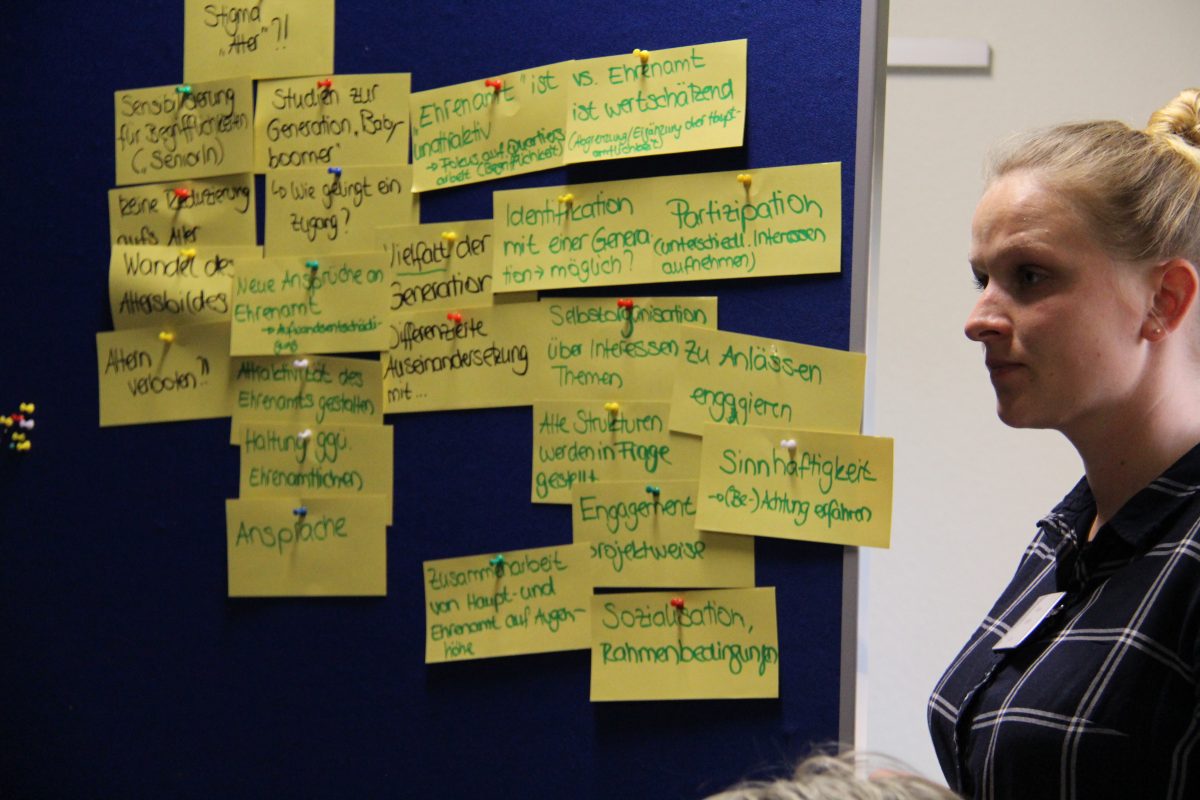 Stigma
„Alter"?!
Sensibilisierung
für Begrifflichkeiten
(„SeniorIn)
Studien zur
Generation „Baby-
boomer"
keine Reduzierung
aufs Alter
↳ Wie gelingt ein
Zugang?
Wandel des
Altersbildes
Altern
verboten?!
Neue Ansprüche an
Ehrenamt
→ Aufwandsentschädi-
gung
Attraktivität des
Ehrenamts gestalten
Haltung ggü.
Ehrenamtlichen
Ansprache
„Ehrenamt" ist
unattraktiv
→ Fokus auf Quartiers
arbeit (Begrifflichkeit)
vs. Ehrenamt
ist wertschätzend
(Abgrenzung/Ergänzung der Haupt-
amtlichkeit)
Vielfalt der
Generation
Differenzierte
Auseinandersetzung
mit...
Identifikation
mit einer Genera-
tion → möglich?
Partizipation
(unterschiedl. Interessen
aufnehmen)
Selbstorganisation
über Interessen
Themen
Zu Anlässen
engagieren
Alte Strukturen
werden in Frage
gestellt
Sinnhaftigkeit
→ (Be-) Achtung erfahren
Engagement
projektweise
Zusammenarbeit
von Haupt- und
Ehrenamt auf Augen-
höhe
Sozialisation,
Rahmenbedingungen